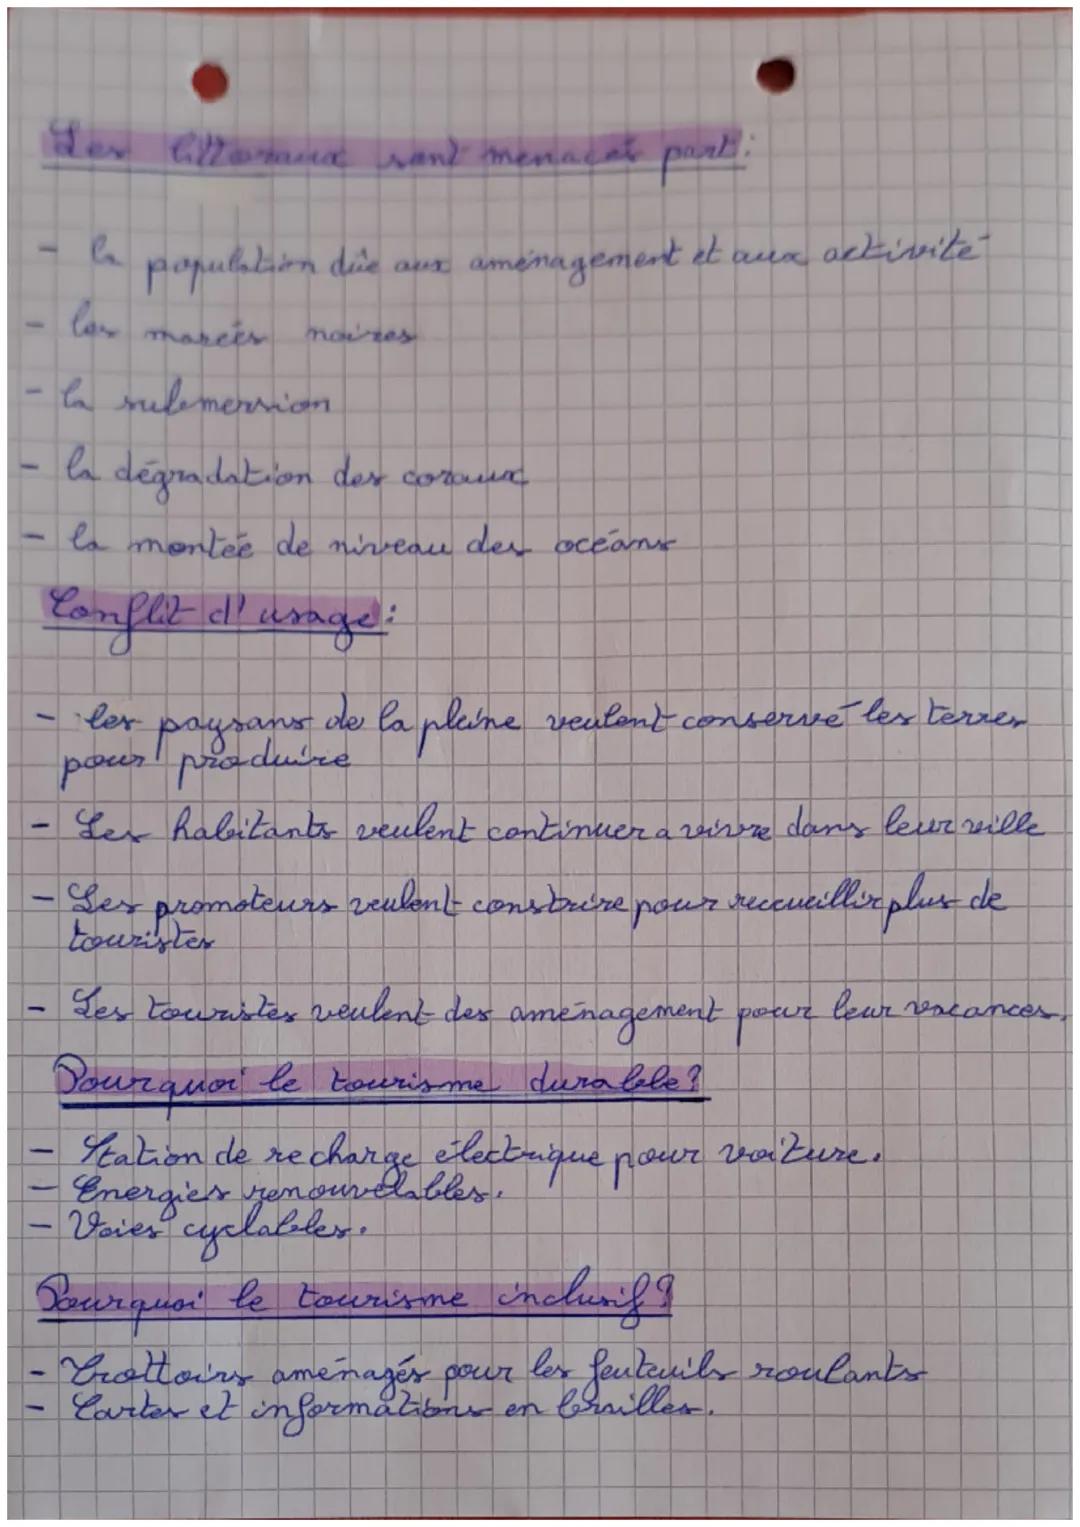 Les littoraux sont menacés part :
- la population dûe aux aménagement et aux activité
- les marées noires
- la submersion
- la dégradation des coraux
- la montée de niveau des océans
Conflit d'usage :
- les paysans de la pleine veulent conservé les terres
pour produire
- Les habitants veulent continuer a vivre dans leur ville
- Les promoteurs veulent construire pour reccueillir plus de
touristes
- Les touristes veulent des aménagement pour leur vacances.
Pourquoi le tourisme durable ?
- Station de recharge électrique pour voiture.
- Energies renouvelables.
- Voies cyclables.
Pourquoi le tourisme inclusif ?
- Trottoirs aménagés pour les feuteuils roulants
- Cartes et informations en brailles.